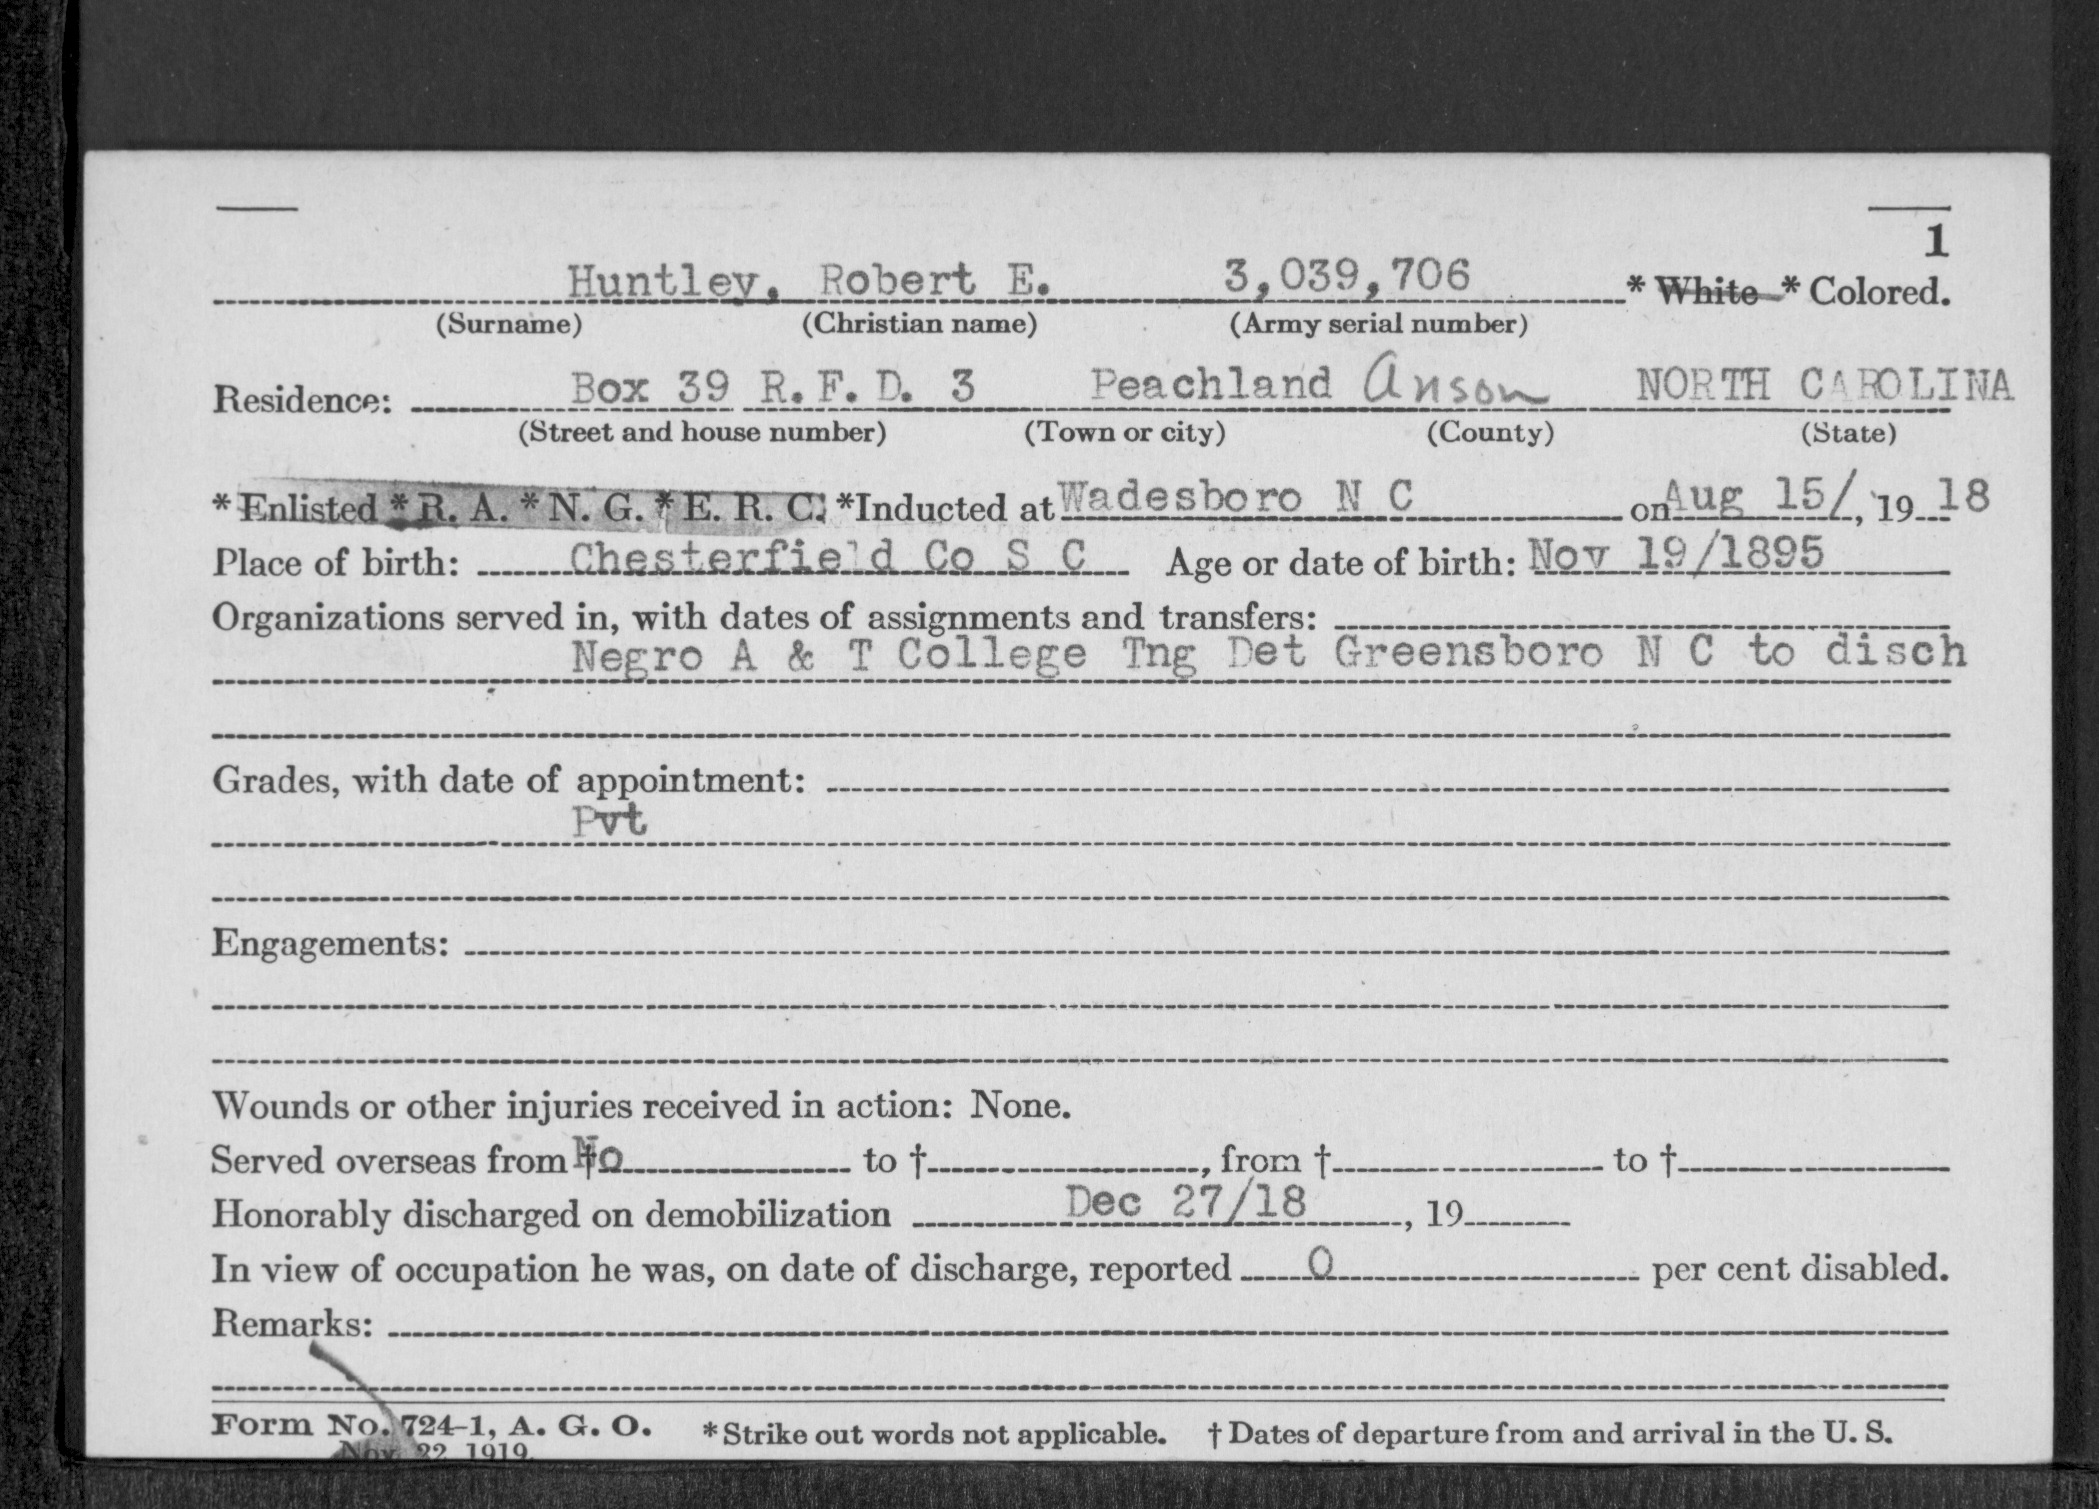 1
Huntley, Robert E. 3,039,706 * White * Colored.
(Surname) (Christian name) (Army serial number)
Residence: Box 39 R. F. D. 3 Peachland Anson NORTH CAROLINA
(Street and house number) (Town or city) (County) (State)
* Enlisted * R. A. * N. G. * E. R. C. *Inducted at Wadesboro N C on Aug 15/, 19 18
Place of birth: Chesterfield Co S C Age or date of birth: Nov 19/1895
Organizations served in, with dates of assignments and transfers:
Negro A & T College Tng Det Greensboro N C to disch
Grades, with date of appointment:
Pvt
Engagements:
Wounds or other injuries received in action: None.
Served overseas from † No to †, from † to †
Honorably discharged on demobilization Dec 27/18, 19
In view of occupation he was, on date of discharge, reported 0 per cent disabled.
Remarks:
Form No. 724-1, A. G. O. * Strike out words not applicable. † Dates of departure from and arrival in the U. S.
Nov. 22, 1919.